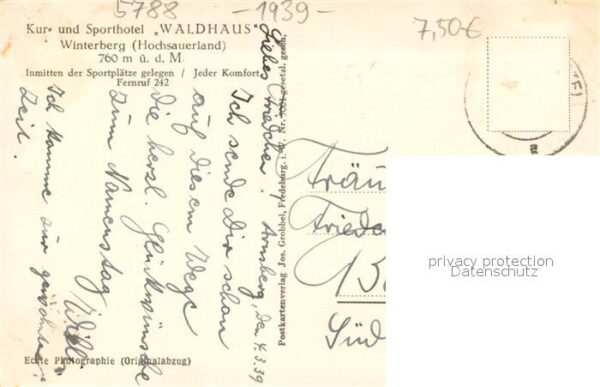 5788
-1939-
7,50€
Kur- und Sporthotel „WALDHAUS“
Winterberg (Hochsauerland)
760 m ü. d. M.
Inmitten der Sportplätze gelegen / Jeder Komfort
Fernruf 242
Arnsberg, den 4.3.39
Liebes Friedchen!
Ich sende Dir schon
auf diesem Wege
die herzl. Glückwünsche
zum Namenstag
Ich komme zur gewohnten
Zeit.
Willi
Postkartenverlag Jos. Grobbel, Fredeburg i. W. Nr. gesetzl. gesch.
Fräu
Friede
Süd
Echte Photographie (Originalabzug)
privacy protection
Datenschutz